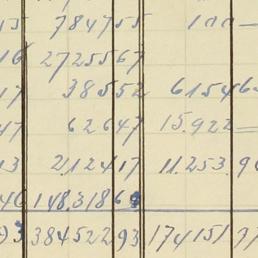 784755 100 —
16 2725567
17 38552 6154 6
47 62647 15.922 —
13 2,12417 11.253.9
46 148.3186
93 38452293 174151 37